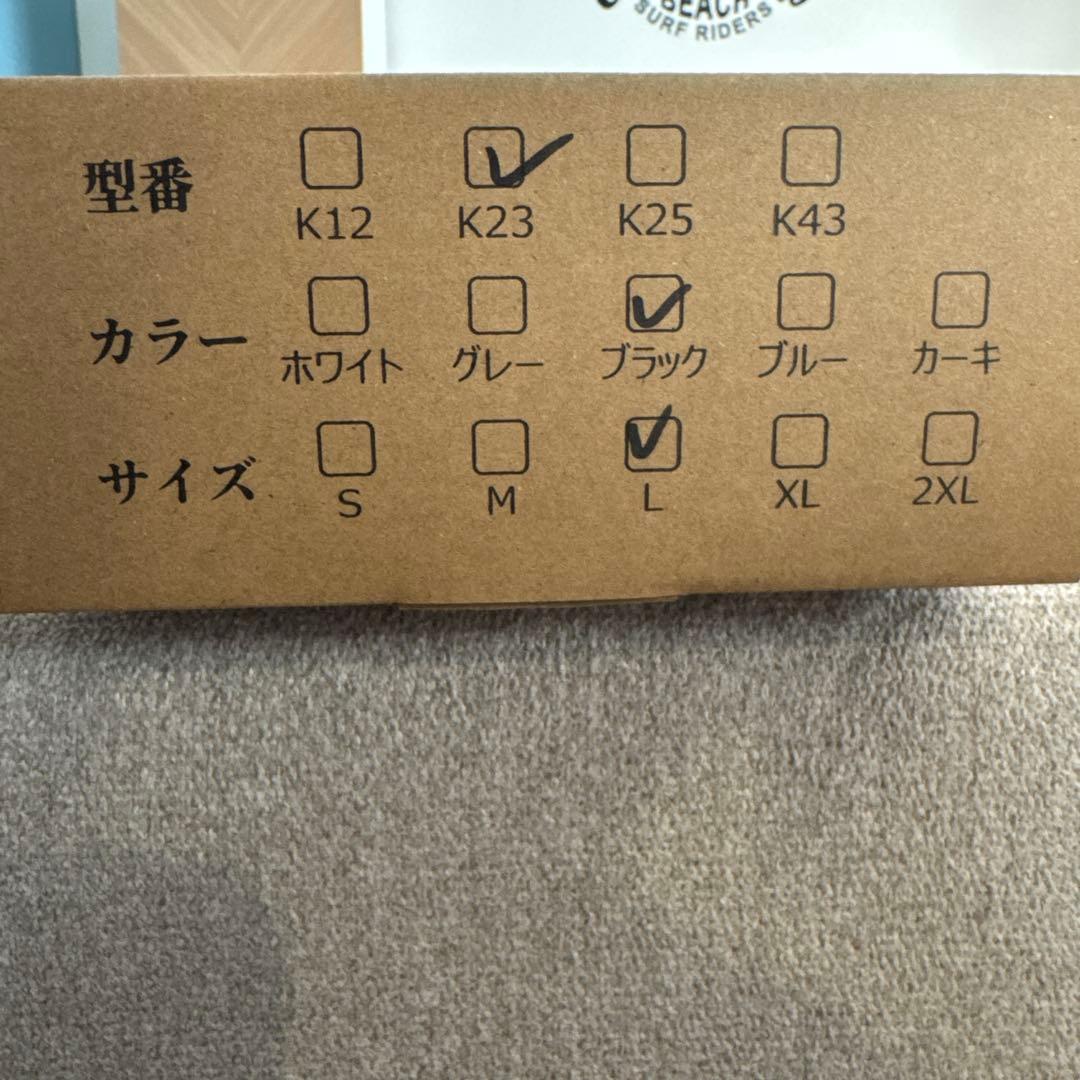 BEACH
SURF RIDERS
型番 K12 K23 K25 K43
カラー ホワイト グレー ブラック ブルー カーキ
サイズ S M L XL 2XL